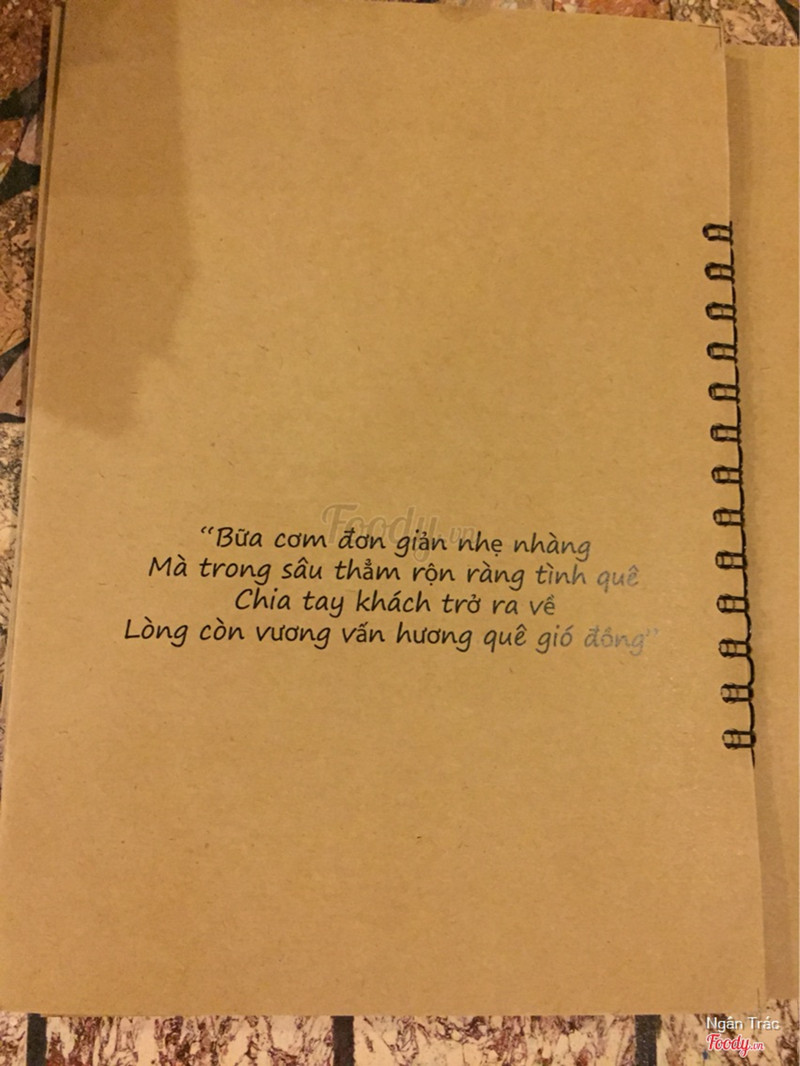 “Bữa cơm đơn giản nhẹ nhàng
Mà trong sâu thẳm rộn ràng tình quê
Chia tay khách trở ra về
Lòng còn vương vấn hương quê gió đồng”
Foody.vn
Ngân Trác
Foody.vn